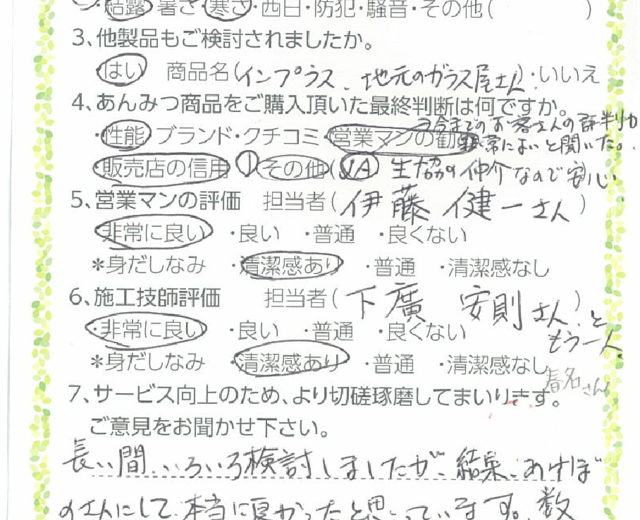 ・結露・暑さ・寒さ・西日・防犯・騒音・その他(　　　)
3、他製品もご検討されましたか。
はい　商品名(インプラス、地元のガラス屋さん)・いいえ
4、あんみつ商品をご購入頂いた最終判断は何ですか。
・性能・ブランド・クチコミ・営業マンの勧め
→今までのお客さんの評判が
非常によいと聞いた。
・販売店の信用・その他(JA 生協の仲介なので安心
5、営業マンの評価　担当者(伊藤健一さん)
・非常に良い・良い・普通・良くない
*身だしなみ・清潔感あり・普通・清潔感なし
6、施工技師評価　担当者(下廣 安則さん)と
もう一人
・非常に良い・良い・普通・良くない
*身だしなみ・清潔感あり・普通・清潔感なし
春名さん
7、サービス向上のため、より切磋琢磨してまいります。
ご意見をお聞かせ下さい。
長い間、いろいろ検討しましたが、結果、あけぼ
のさんにして、本当に良かったと思っています。数